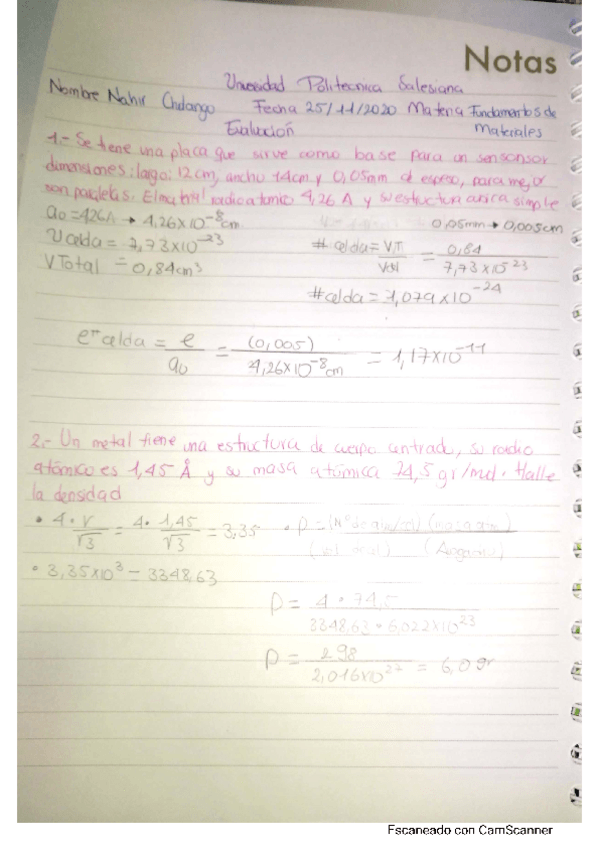 Notas
Universidad Politecnica Salesiana
Nombre Nahir Chulango Fecha 25/11/2020 Materia Fundamentos de
Evaluación Materiales
1.- Se tiene una placa que sirve como base para un sensonsor
dimensiones: largo; 12cm, ancho 14cm y 0,05mm de espeso, para mejor
son paralelas. El radio atomico 4,26 A y su estructura simple
a0 = 426A → 4,26×10⁻⁸cm 0,05mm → 0,005cm
Vcelda = 7,73×10⁻²³ # celda = VT/Vcel = 0,84/7,73×10⁻²³
VTotal = 0,84cm³
#celda = 1,079×10⁻²⁴
celda = e/a0 = (0,005)/4,26×10⁻⁸cm = 1,17×10⁻¹¹
2.- Un metal tiene una estructura de cuerpo centrado, su radio
atómico es 1,45 Å y su masa atómica 74,5 gr/mol. Halle
la densidad
• 4·r/√3 = 4·1,45/√3 = 3,35 • P = (Nº de )(masa )/( )( )
• 3,35×10³ = 3348,63
P = 4 · 74,5/3348,63 · 6,022×10²³
P = 298/2,016×10²⁷ = 6,0 gr
Escaneado con CamScanner